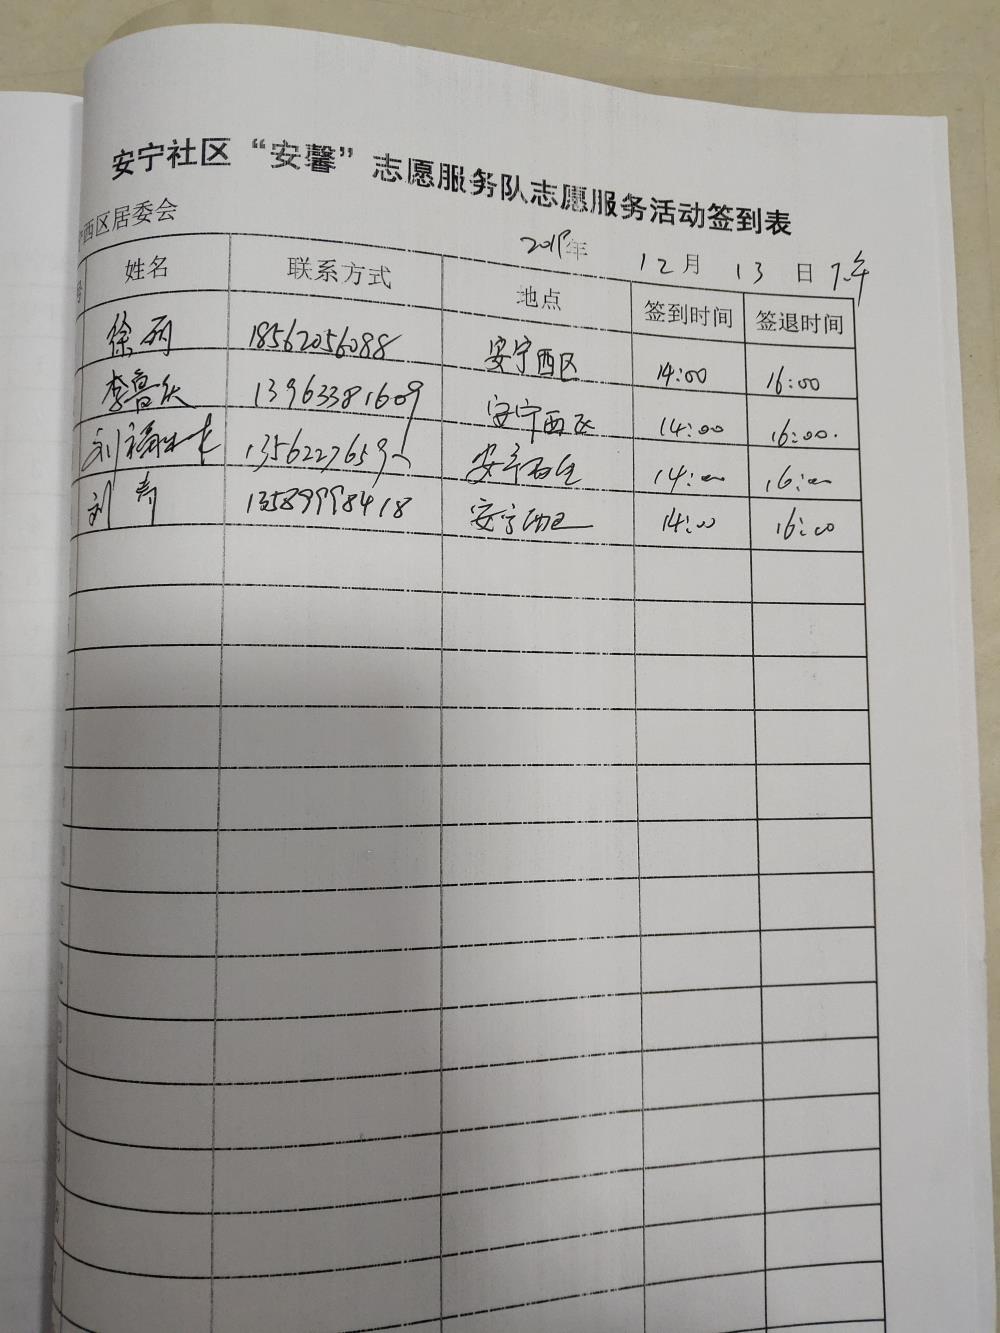 安宁社区“安馨”志愿服务队志愿服务活动签到表
西区居委会
年 12月 13日 下午
号 姓名 联系方式 地点 签到时间 签退时间
徐 18562056088 安宁西区 14:00 16:00
李鲁 13963381609 安宁西区 14:00 16:00.
刘福 安宁西区 14:00 16:00
刘 13589998418 安宁西区 14:00 16:00